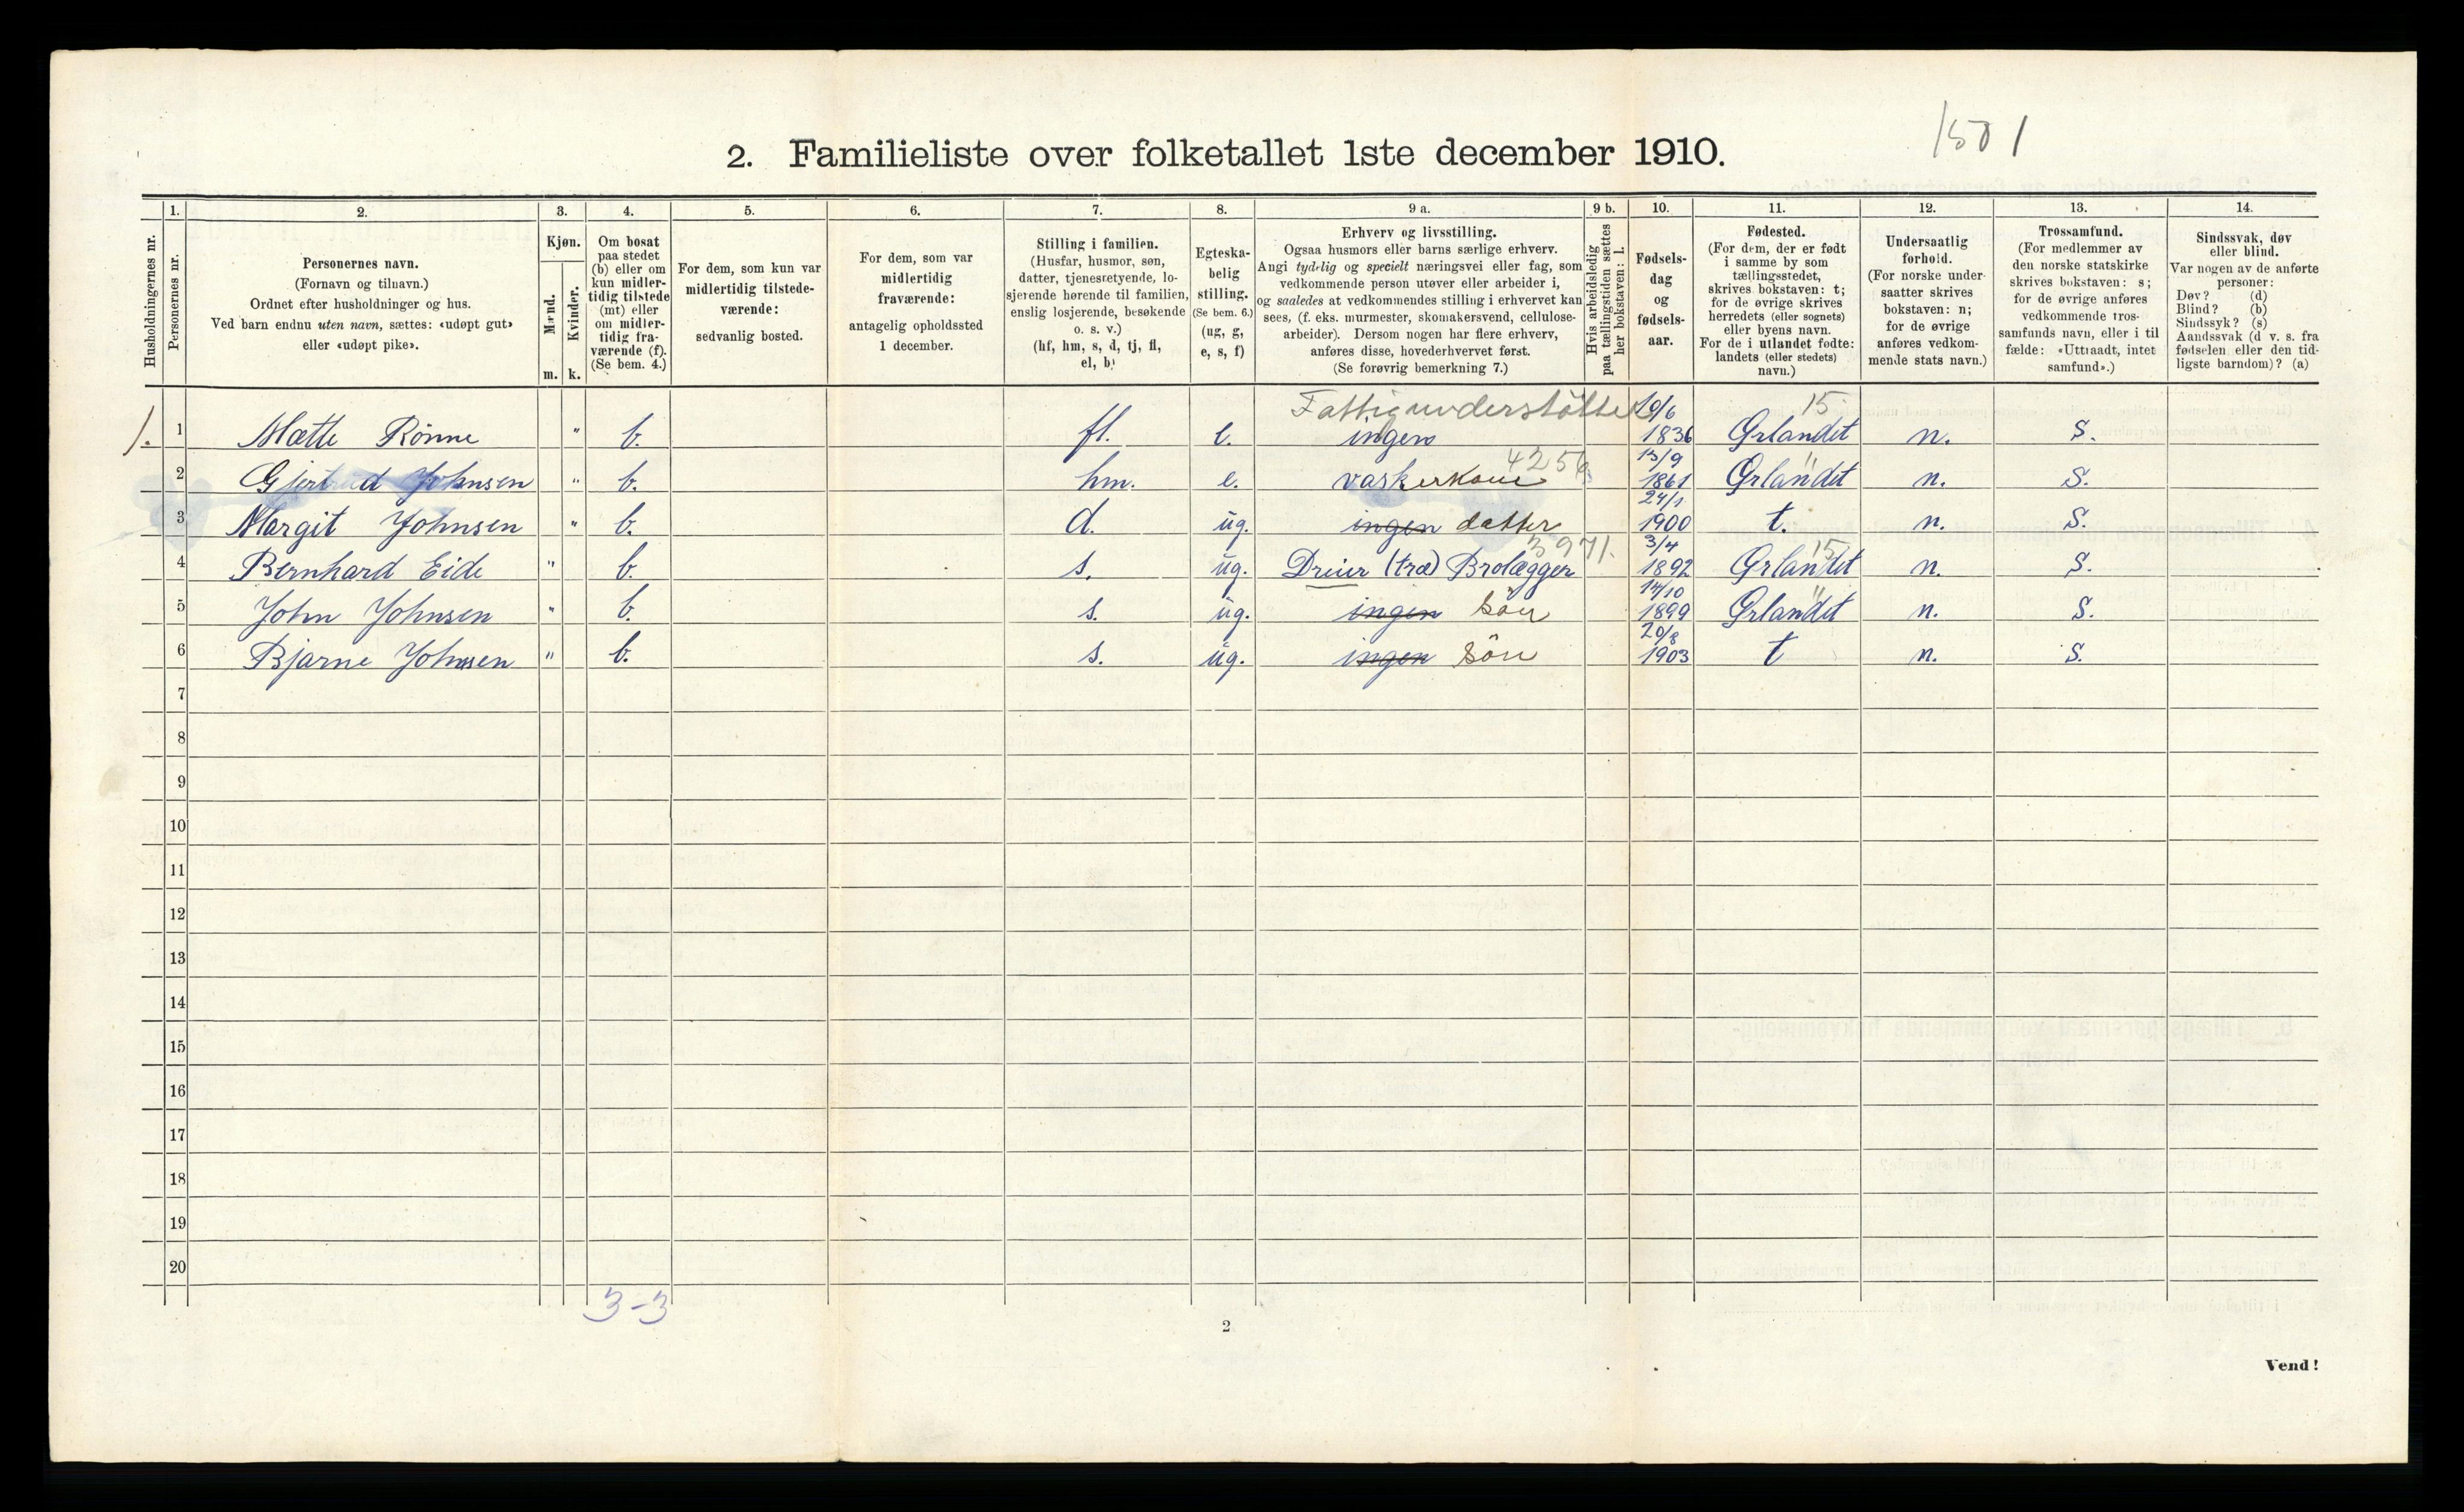 1501
2. Familieliste over folketallet 1ste december 1910.
1. 2. 3. 4. 5. 6. 7. 8. 9 a. 9 b. 10. 11. 12. 13. 14.
Husholdningernes nr.
Personernes nr.
Personernes navn.
(Fornavn og tilnavn.)
Ordnet efter husholdninger og hus.
Ved barn endnu uten navn, sættes: «udøpt gut»
eller «udøpt pike».
Kjøn.
Mænd.
Kvinder.
m. k.
Om bosat
paa stedet
(b) eller om
kun midler-
tidig tilstede
(mt) eller
om midler-
tidig fra-
værende (f).
(Se bem. 4.)
For dem, som kun var
midlertidig tilstede-
værende:
sedvanlig bosted.
For dem, som var
midlertidig
fraværende:
antagelig opholdssted
1 december.
Stilling i familien.
(Husfar, husmor, søn,
datter, tjenestetyende, lo-
sjerende hørende til familien,
enslig losjerende, besøkende
o. s. v.)
(hf, hm, s, d, tj, fl,
el, b)
Egteska-
belig
stilling.
(Se bem. 6.)
(ug, g,
e, s, f)
Erhverv og livsstilling.
Ogsaa husmors eller barns særlige erhverv.
Angi tydelig og specielt næringsvei eller fag, som
vedkommende person utøver eller arbeider i,
og saaledes at vedkommendes stilling i erhvervet kan
sees, (f. eks. murmester, skomakersvend, cellulose-
arbeider). Dersom nogen har flere erhverv,
anføres disse, hovederhvervet først.
(Se forøvrig bemerkning 7.)
Hvis arbeidsledig
paa tællingstiden sættes
her bokstaven: l.
Fødsels-
dag
og
fødsels-
aar.
Fødested.
(For dem, der er født
i samme by som
tællingsstedet,
skrives bokstaven: t;
for de øvrige skrives
herredets (eller sognets)
eller byens navn.
For de i utlandet fødte:
landets (eller stedets)
navn.)
Undersaatlig
forhold.
(For norske under-
saatter skrives
bokstaven: n;
for de øvrige
anføres vedkom-
mende stats navn.)
Trossamfund.
(For medlemmer av
den norske statskirke
skrives bokstaven: s;
for de øvrige anføres
vedkommende tros-
samfunds navn, eller i til
fælde: «Uttraadt, intet
samfund».)
Sindssvak, døv
eller blind.
Var nogen av de anførte
personer:
Døv? (d)
Blind? (b)
Sindssyk? (s)
Aandssvak (d v. s. fra
fødselen eller den tid-
ligste barndom)? (a)
Fattigunderstöttet 10/6 15
1. 1 Mætte Rönne " b. fl. e. ingen 1836 Ørlandet n. S.
4256 13/9 "
2 Gjertrud Johnsen " b. hm. e. vaskerkone 1861 Ørlandet n. S.
24/1
3 Margit Johnsen " b. d. ug. ingen datter 1900 t. n. S.
3971. 3/4 15
4 Bernhard Eide " b. s. ug. Dreier (træ) Brolægger 1892 Ørlandet n. S.
14/10 "
5 John Johnsen " b. s. ug. ingen Sön 1899 Ørlandet n. S.
20/8
6 Bjarne Johnsen " b. s. ug. ingen Sön 1903 t n. S.
7
8
9
10
11
12
13
14
15
16
17
18
19
20
3-3
2
Vend!